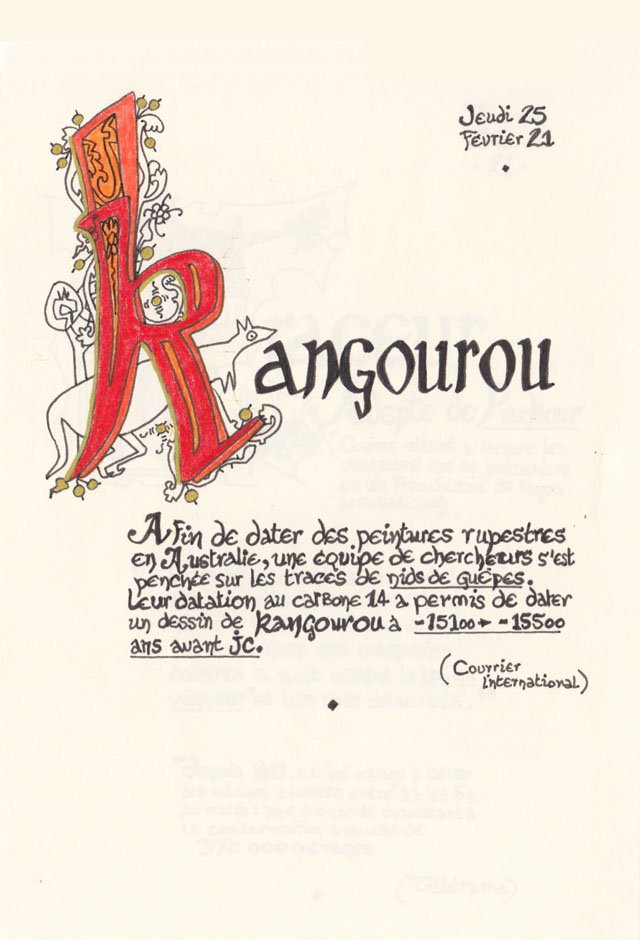 Jeudi 25
Février 21
Kangourou
Afin de dater des peintures rupestres
en Australie, une équipe de chercheurs s'est
penchée sur les traces de nids de guêpes.
Leur datation au carbone 14 a permis de dater
un dessin de kangourou à -15100 + -15500
ans avant JC.
(Courrier
International)